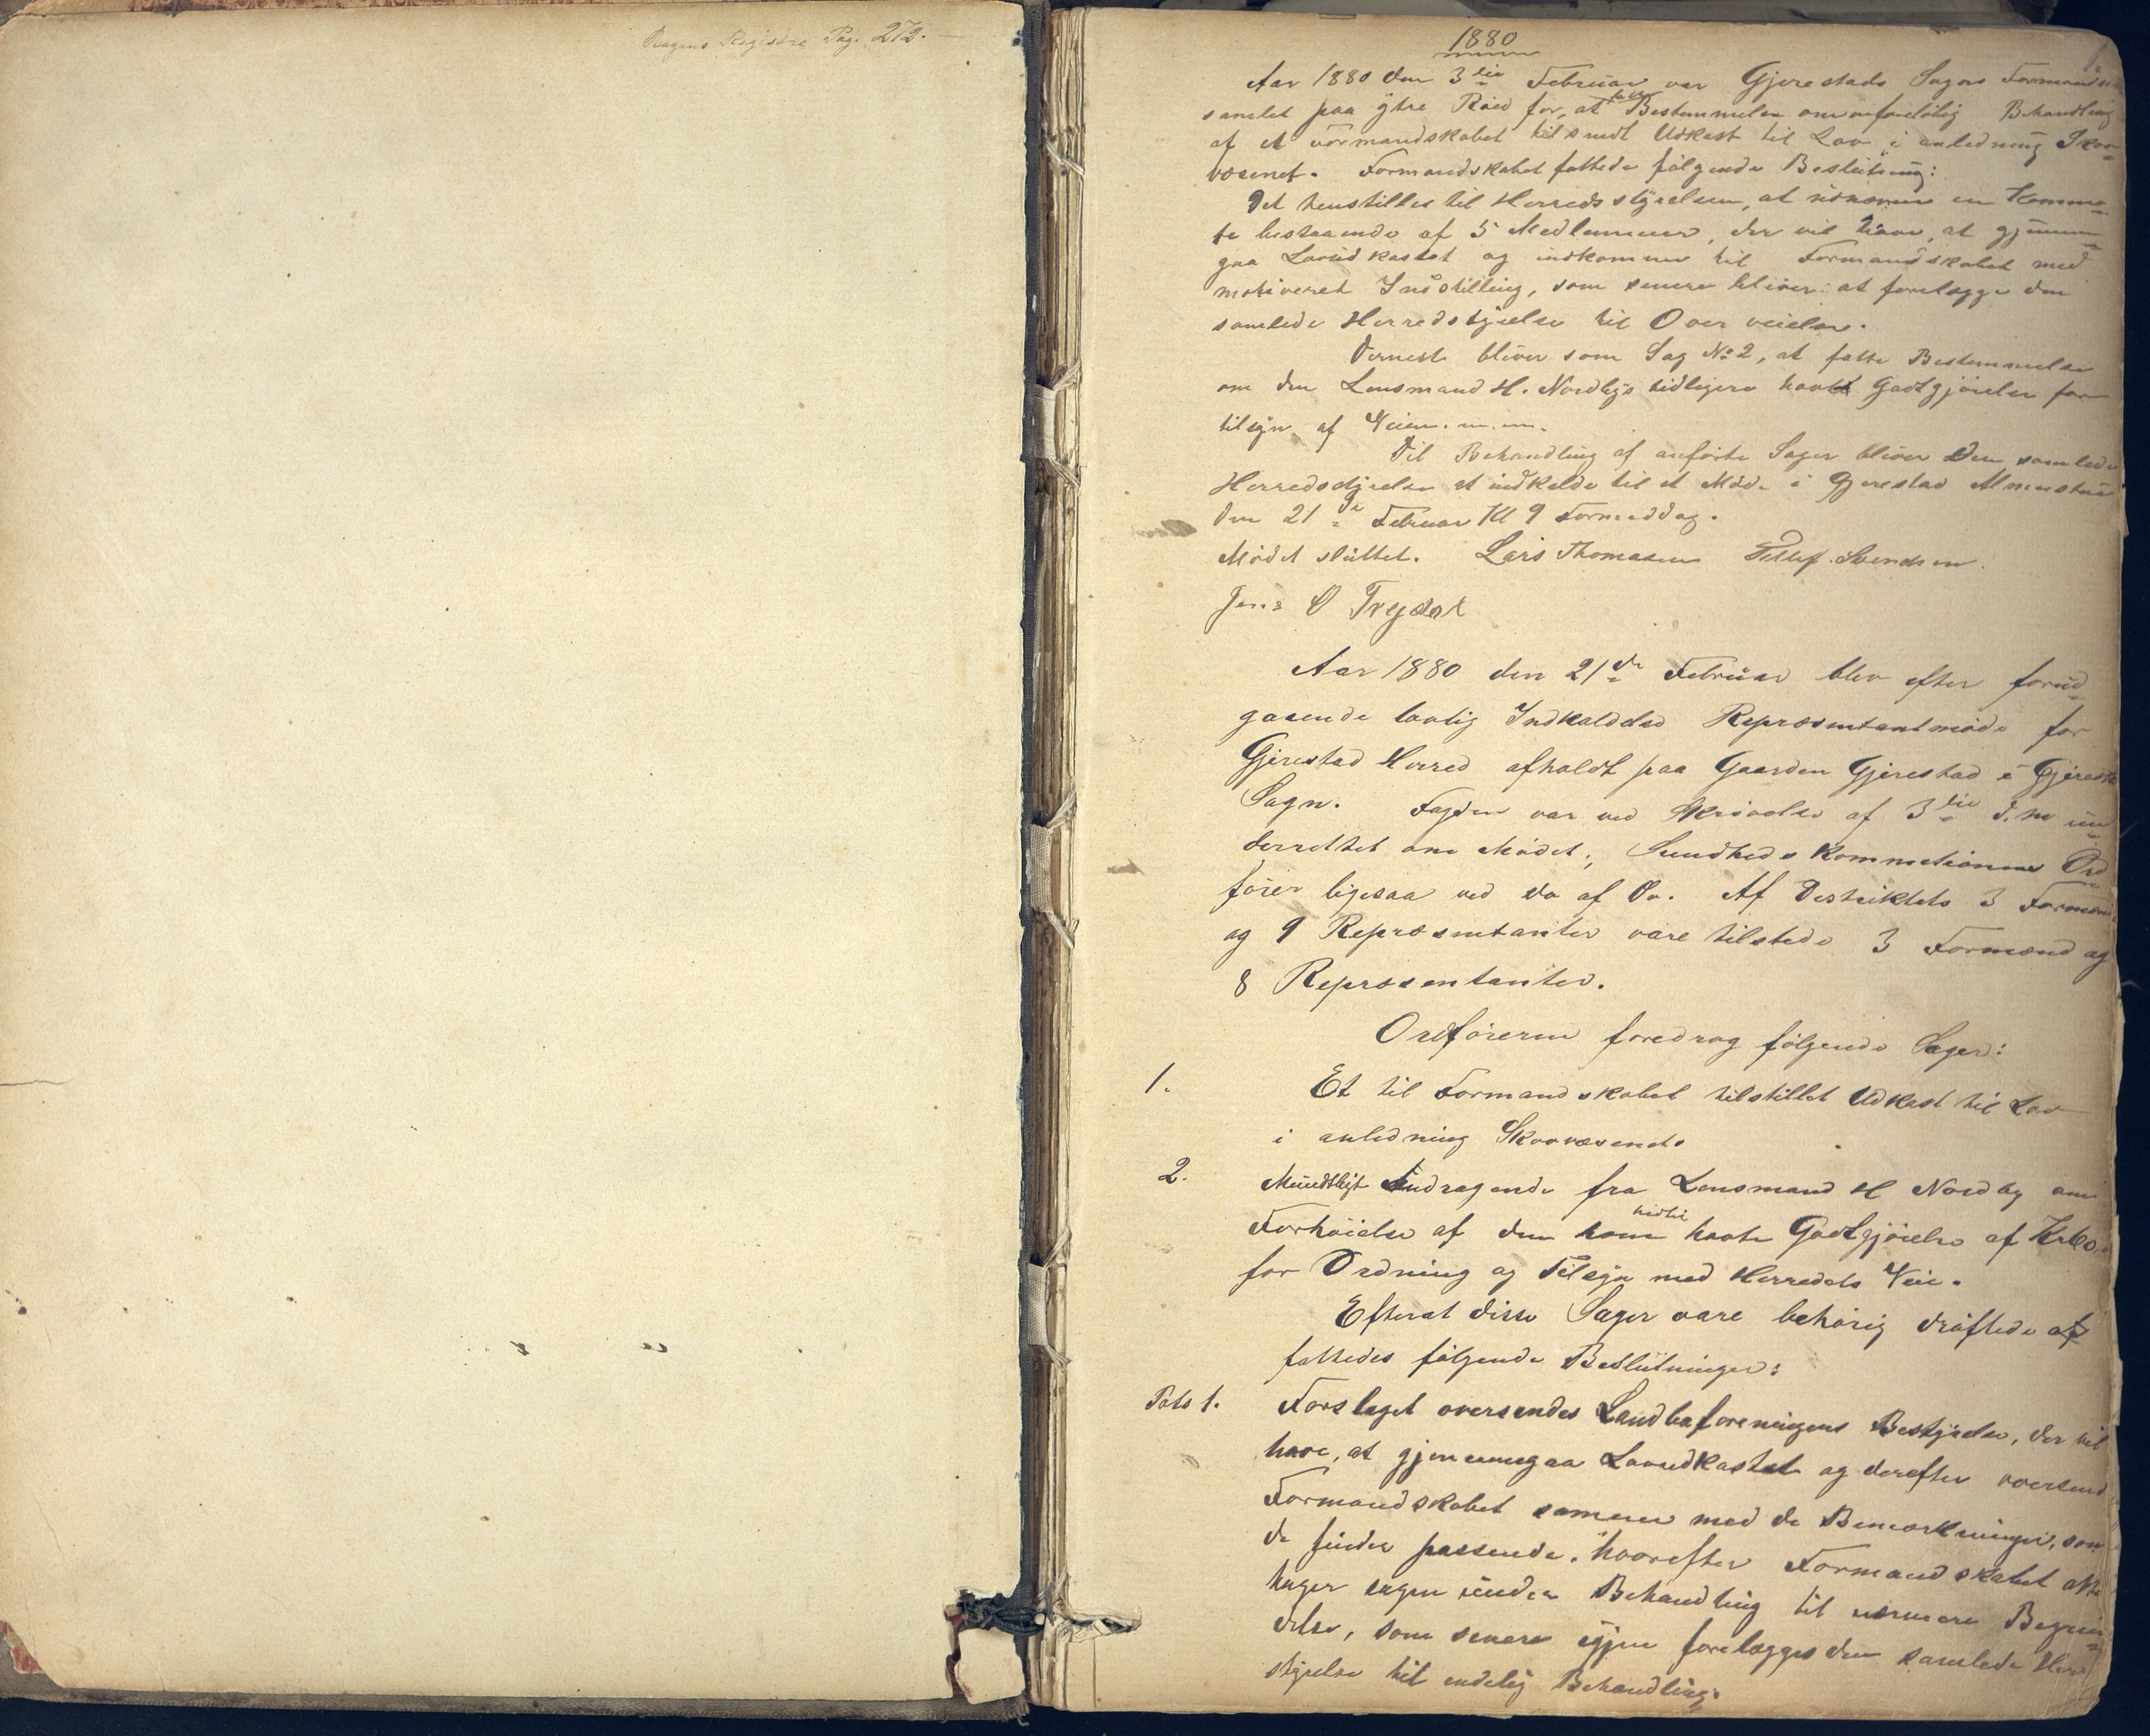 Register Pag. 272.
1880
Aar 1880 den 3die Februar var Gjerestads Sogns Formands-
samlet paa Ytre Röed for, at tage Bestemmelse om foreløbig Behandling
af et Formandskabet tilsendt Udkast til Lov i anledning Skov-
væsenet. Formandskabet fattede følgende Beslutning:
Det henstilles til Herredsstyrelsen, at udnævne en Komme-
te bestaaende af 5 Medlemmer, der vil have, at gjennem-
gaa Lovudkastet og indkomme til Formandskabet med
motiveret Indstilling, som senere bliver at forelægge den
samlede Herredstyrelse til Overveielse.
Dernest bliver som Sag No 2, at fatte Bestemmelse
om den Lensmand H. Nordbys tidligere havte Godtgjörelse for
tilsyn af Veien. m.m.
Til Behandling af anførte Sager bliver Den samlede
Herredsstyrelse at indkalde til et Møde i Gjerestad Almenstue
den 21de Februar Kl 9 Formiddag.
Mödet sluttet. Lars Thomasen Tellef Svendsen.
Jens O Trydal
Aar 1880 den 21de Februar blev efter forud-
gaaende lovlig Indkaldelse Repræsentantmöde for
Gjerestad Herred afholdt paa Gaarden Gjerestad i Gjerestad
Sogn. Fogden var ved Skrivelse af 3die d.m un-
derrettet om Mødet, Sundheds Kommetionens Ord-
förer ligesaa ved do af do. Af Destriktets 3 Formænd
og 9 Repræsentanter vare tilstede 3 Formænd og
8 Repræsentanter.
Ordføreren foredrog følgende Sager:
1. Et til Formandskabet tilstillet Udkast til Lov
i anledning Skovvæsendet
2. Mundtligt Andragende fra Lensmand H Nordby om
Forhöielse af den ham hidtil havte Godtgjörelse af Kr 60
for Ordning og Tilsyn med Herredets Veie.
Efterat disse Sager vare behørig drøftede af
fattedes følgende Beslutninger:
Pots 1. Forslaget oversendes Landboforeningens Bestyrelse, der vil
have, at gjennemgaa Lovudkastet og derefter oversend
Formandskabet sammen med de Bemærkninger, som
de finder passende, hvorefter Formandskabet atter
tager sagen under Behandling til nærmere Begrun-
delse, som senere igjen forelægges den samlede Herreds
styrelse til endelig Behandling.